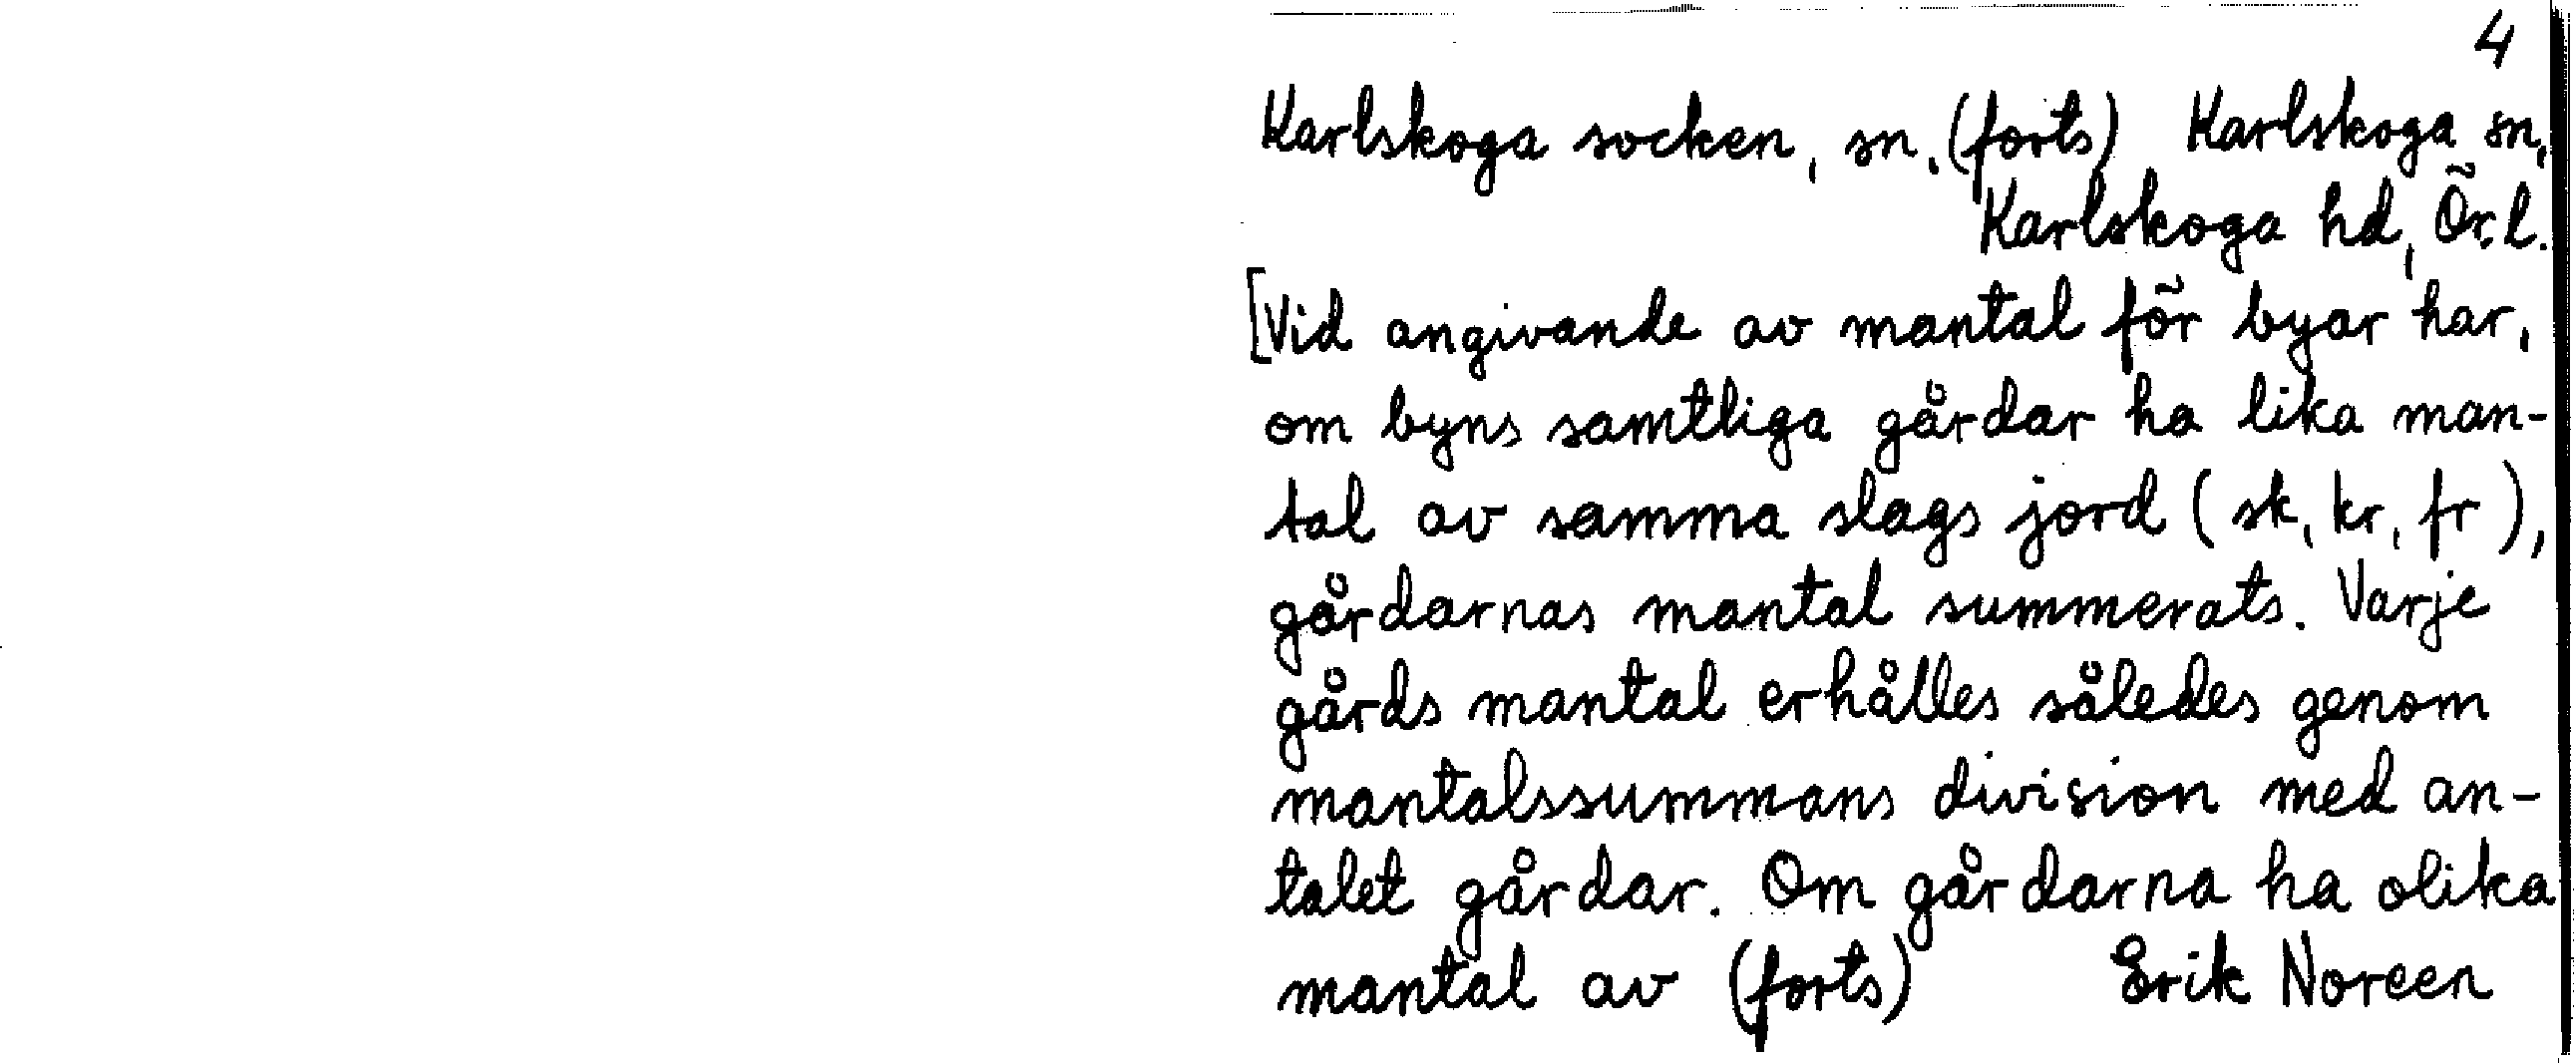 4
Karlskoga socken, sn. (forts) Karlskoga sn,
Karlskoga hd, Ör. l.
[Vid angivande av mantal för byar har,
om byns samtliga gårdar ha lika man-
tal av samma slags jord (sk, kr, fr),
gårdarnas mantal summerats. Varje
gårds mantal erhålles således genom
mantalssummans division med an-
talet gårdar. Om gårdarna ha olika
mantal av (forts) Erik Noreen